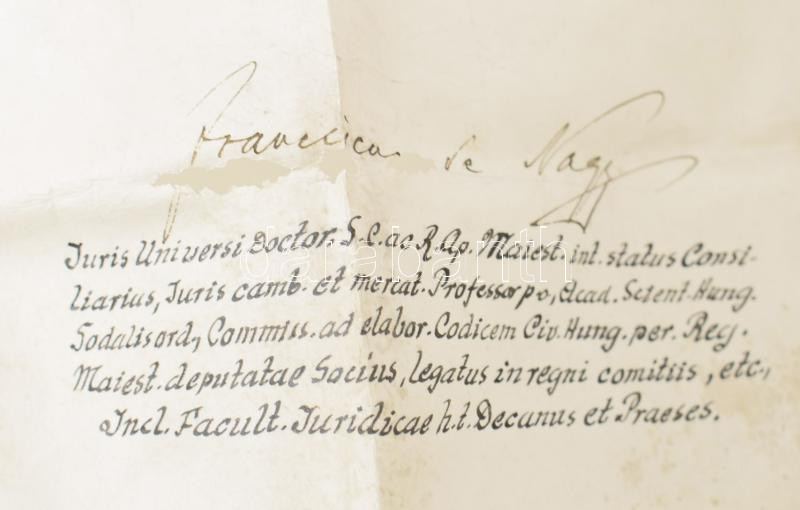 Franciscus de Nagy
Juris Universi Doctor. S. C. ac R. Ap. Maiest. int. status Consi-
liarius, Juris camb. et mercat. Professor p. o., Acad. Scient. Hung.
Sodalis ord., Commiss. ad elabor. Codicem Civ. Hung. per. Reg.
Maiest. deputatae Socius, legatus in regni comitiis, etc.,
Incl. Facult. Juridicae h. t. Decanus et Praeses.
darabanth